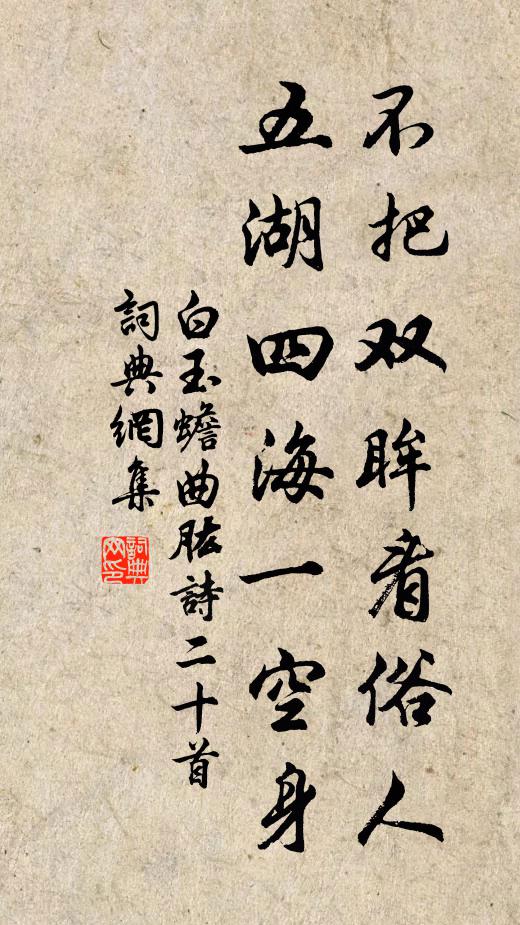 不把双眸看俗人
五湖四海一空身
白玉蟾曲肱詩二十首
詞典網集
詞典网印